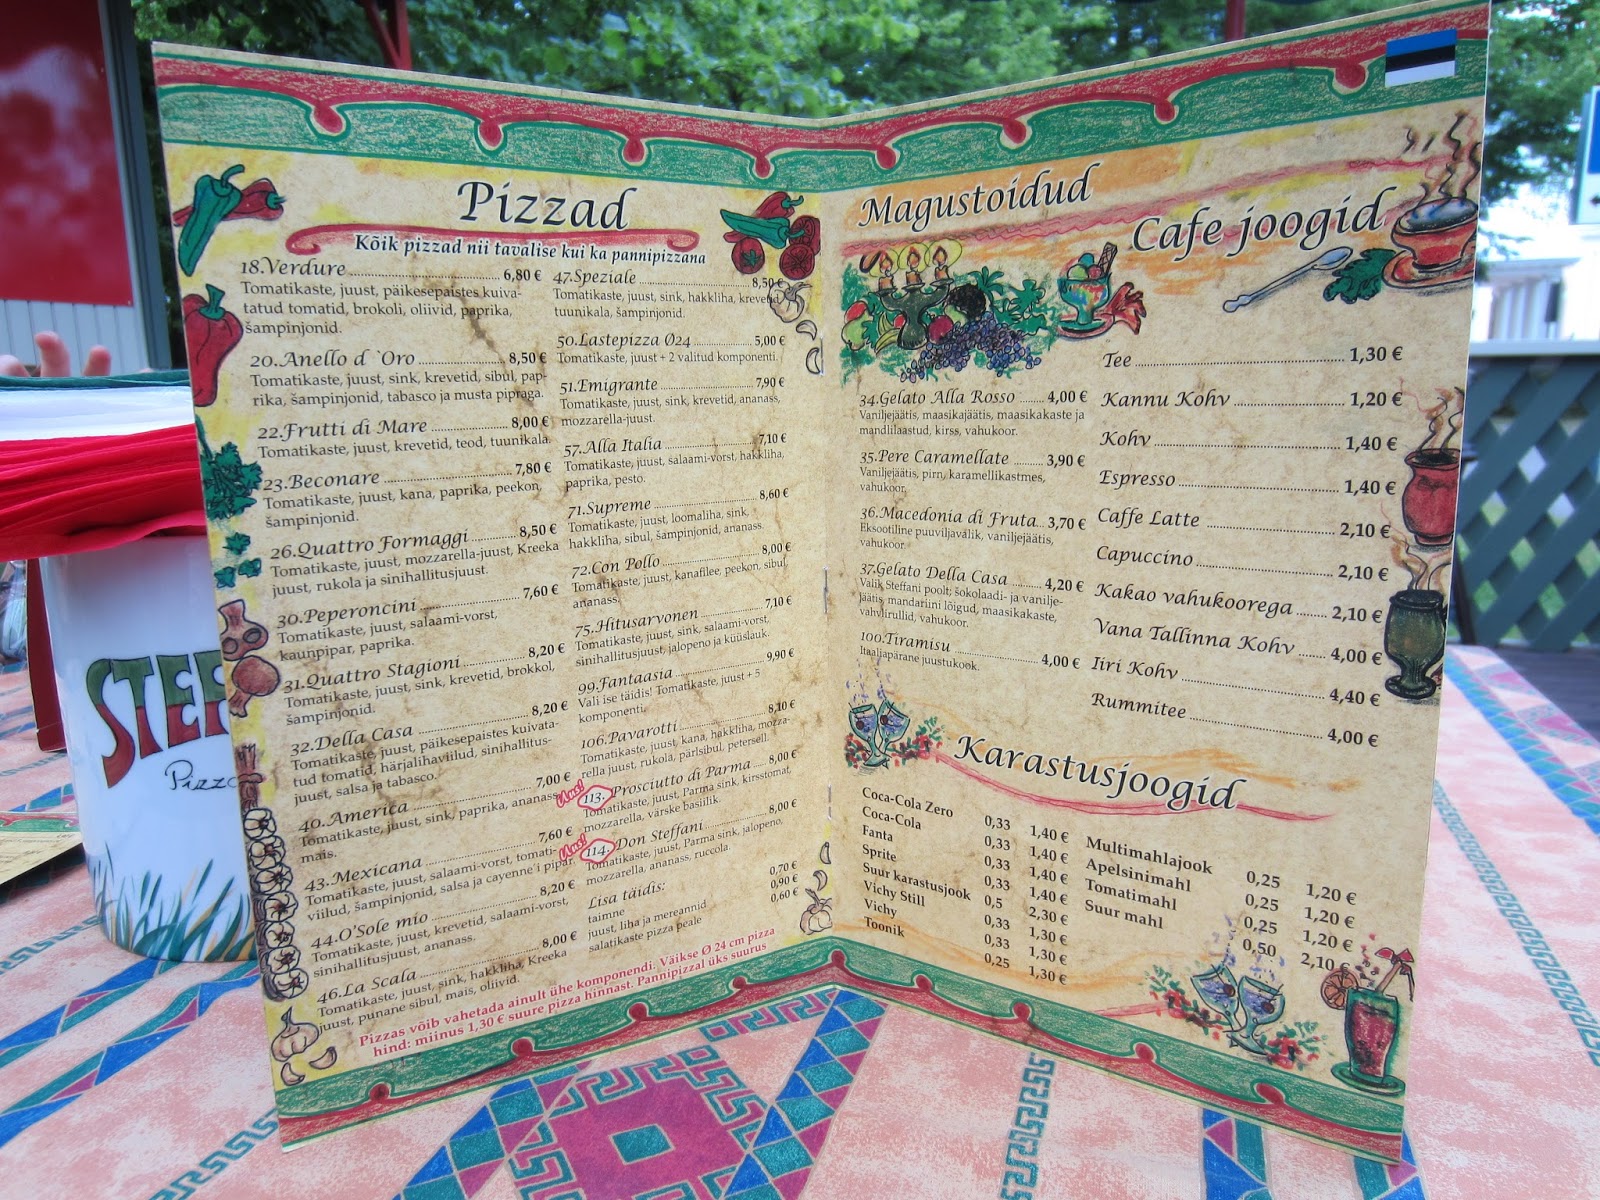 Pizzad
Kõik pizzad nii tavalise kui ka pannipizzana
18.Verdure 6,80 €
Tomatikaste, juust, päikesepaistes kuiva-
tatud tomatid, brokoli, oliivid, paprika,
šampinjonid.
20.Anello d `Oro 8,50 €
Tomatikaste, juust, sink, krevetid, sibul, pap-
rika, šampinjonid, tabasco ja musta pipraga.
22.Frutti di Mare 8,00 €
Tomatikaste, juust, krevetid, teod, tuunikala.
23.Beconare 7,80 €
Tomatikaste, juust, kana, paprika, peekon,
šampinjonid.
26.Quattro Formaggi 8,50 €
Tomatikaste, juust, mozzarella-juust, Kreeka
juust, rukola ja sinihallitusjuust.
30.Peperoncini 7,60 €
Tomatikaste, juust, salaami-vorst,
kaunpipar, paprika.
31.Quattro Stagioni 8,20 €
Tomatikaste, juust, sink, krevetid, brokkol,
šampinjonid.
32.Della Casa 8,20 €
Tomatikaste, juust, päikesepaistes kuivata-
tud tomatid, härjalihaviilud, sinihallitus-
juust, salsa ja tabasco.
40.America 7,00 €
Tomatikaste, juust, sink, paprika, ananass,
mais.
43.Mexicana 7,60 €
Tomatikaste, juust, salaami-vorst, tomati-
viilud, šampinjonid, salsa ja cayenne´i pipar.
44.O'Sole mio 8,20 €
Tomatikaste, juust, krevetid, salaami-vorst,
sinihallitusjuust, ananass.
46.La Scala 8,00 €
Tomatikaste, juust, sink, hakkliha, Kreeka
juust, punane sibul, mais, oliivid.
47.Speziale 8,50 €
Tomatikaste, juust, sink, hakkliha, krevetid,
tuunikala, šampinjonid.
50.Lastepizza Ø24 5,00 €
Tomatikaste, juust + 2 valitud komponenti.
51.Emigrante 7,90 €
Tomatikaste, juust, sink, krevetid, ananass,
mozzarella-juust.
57.Alla Italia 7,10 €
Tomatikaste, juust, salaami-vorst, hakkliha,
paprika, pesto.
71.Supreme 8,60 €
Tomatikaste, juust, loomaliha, sink,
hakkliha, sibul, šampinjonid, ananass.
72.Con Pollo 8,00 €
Tomatikaste, juust, kanafilee, peekon, sibul,
ananass.
75.Hitusarvonen 7,10 €
Tomatikaste, juust, sink, salaami-vorst,
sinihallitusjuust, jalopeno ja küüslauk.
99.Fantaasia 9,90 €
Vali ise täidis! Tomatikaste, juust + 5
komponenti.
106.Pavarotti 8,10 €
Tomatikaste, juust, kana, hakkliha, mozza-
rella juust, rukola, pärlsibul, petersell.
Uus! 113. Prosciutto di Parma 8,00 €
Tomatikaste, juust, Parma sink, kirsstomat,
mozzarella, värske basiilik.
Uus! 114. Don Steffani 8,00 €
Tomatikaste, juust, Parma sink, jalopeno,
mozzarella, ananass, ruccola.
Lisa täidis:
taimne 0,70 €
juust, liha ja mereannid 0,90 €
salatikaste pizza peale 0,60 €
Pizzas võib vahetada ainult ühe komponendi. Väikse Ø 24 cm pizza
hind: miinus 1,30 € suure pizza hinnast. Pannipizzal üks suurus
Magustoidud
34.Gelato Alla Rosso 4,00 €
Vaniljejäätis, maasikajäätis, maasikakaste ja
mandlilaastud, kirss, vahukoor.
35.Pere Caramellate 3,90 €
Vaniljejäätis, pirn, karamellikastmes,
vahukoor.
36.Macedonia di Fruta 3,70 €
Eksootiline puuviljavalik, vaniljejäätis,
vahukoor.
37.Gelato Della Casa 4,20 €
Valik Steffani poolt; šokolaadi- ja vanilje-
jäätis, mandariini lõigud, maasikakaste,
vahvlirullid, vahukoor.
100.Tiramisu 4,00 €
Itaaliapärane juustukook.
Cafe joogid
Tee 1,30 €
Kannu Kohv 1,20 €
Kohv 1,40 €
Espresso 1,40 €
Caffe Latte 2,10 €
Capuccino 2,10 €
Kakao vahukoorega 2,10 €
Vana Tallinna Kohv 4,00 €
Iiri Kohv 4,40 €
Rummitee 4,00 €
Karastusjoogid
Coca-Cola Zero 0,33 1,40 €
Coca-Cola 0,33 1,40 €
Fanta 0,33 1,40 €
Sprite 0,33 1,40 €
Suur karastusjook 0,5 2,30 €
Vichy Still 0,33 1,30 €
Vichy 0,33 1,30 €
Toonik 0,25 1,30 €
Multimahlajook 0,25 1,20 €
Apelsinimahl 0,25 1,20 €
Tomatimahl 0,25 1,20 €
Suur mahl 0,50 2,10 €
STEF
Pizza